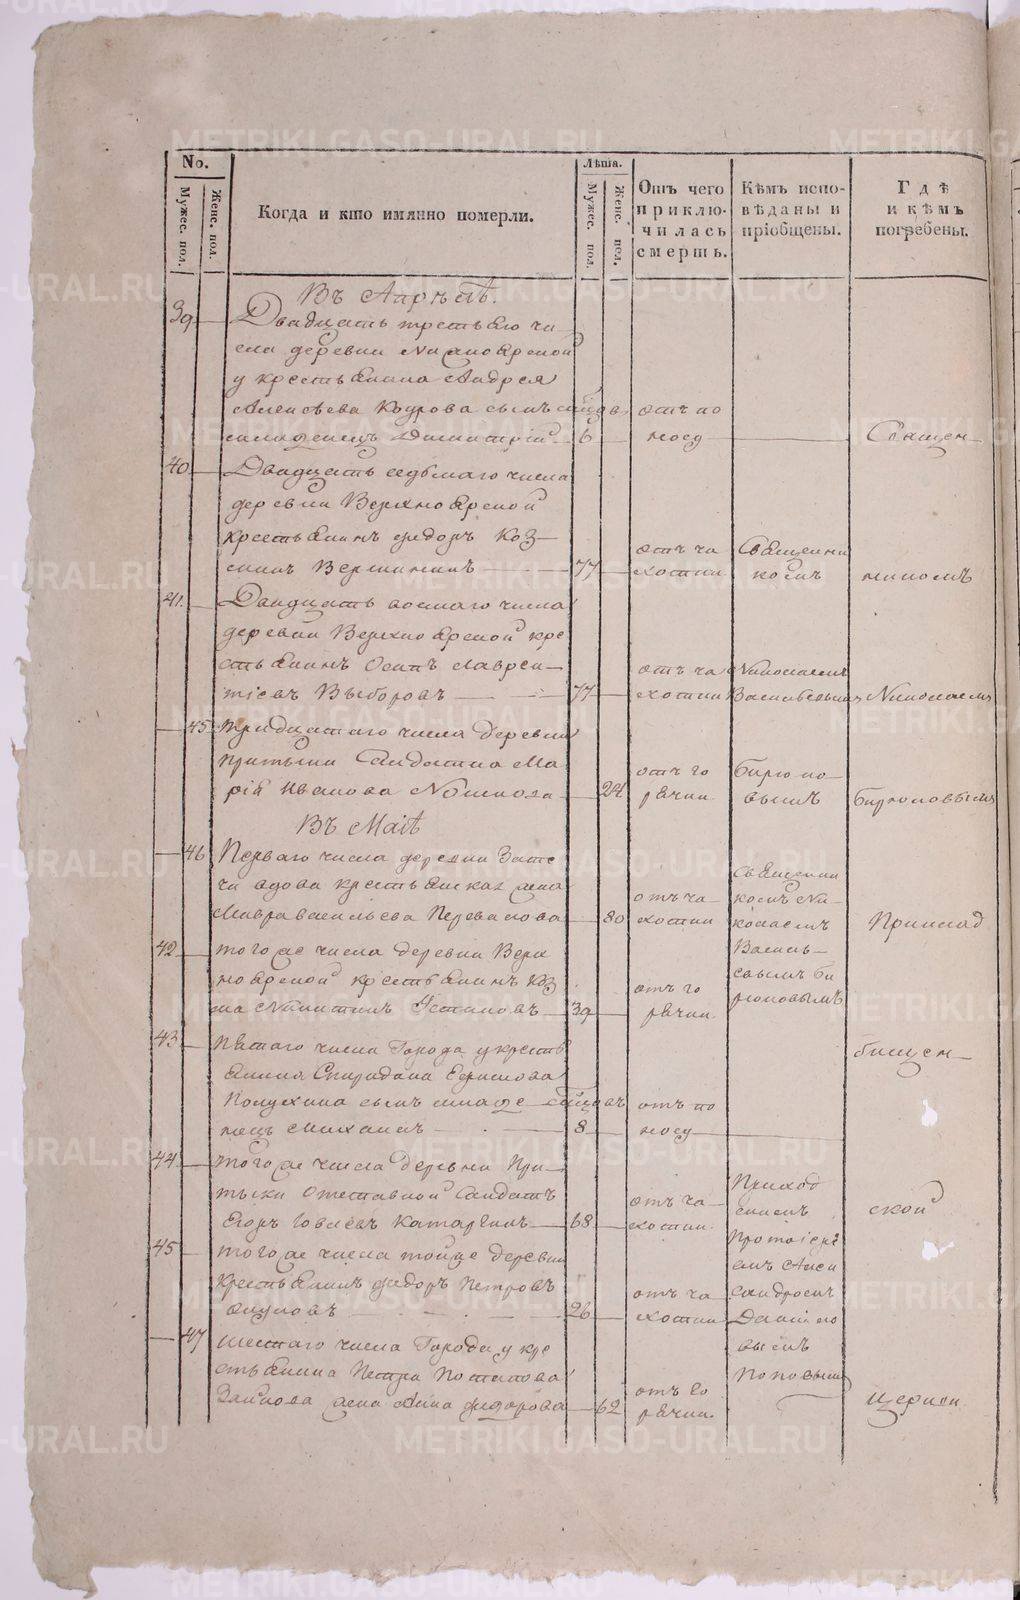 No.
Лѣта.
Мужес. пол.
Женс. пол.
Когда и кто имянно померли.
Мужес. пол.
Женс. пол.
Отъ чего
приклю-
чилась
смерть.
Кѣмъ испо-
вѣданы и
пріобщены.
Гдѣ
и кѣмъ
погребены.
Въ Апрѣлѣ.
39
Двадцать третьяго чи
сла деревни
у крестьянина Андрея
Алексѣева Кодрова сынъ
младенецъ Димитрій 6
отъ по
носу
Священ-
40
Двадцать седьмаго числа
деревни Верхно Ярской
крестьянинъ Федоръ Коз-
минъ Вершининъ 77
отъ ча
хотки
Священни
комъ
никомъ
41.
Двадцать восмаго числа
деревни Верхно Ярской кре
стьянинъ Осипъ Лаврен-
тіевъ Выборовъ 77
отъ ча
хотки
Николаемъ
Васильевымъ
Николаемъ
45
тридцатаго числа деревни
Притыки Салдатка Ма
рія Иванова 24
отъ го
рячки
Бирюко-
вымъ
Бирюковымъ
Въ Маіѣ
46
Перваго числа деревни Зате
чи вдова крестьянская жена
Мавра Васильева Перевалова 80
отъ ча-
хотки
Священни
комъ Ни
колаемъ
Василь-
евымъ Би
рюковымъ
Приклад
42
того же числа деревни Верх
но Ярской крестьянинъ Коз
ма Никитинъ Устиновъ 39
отъ го
рячки
43
Пятаго числа Города у кресть
янина Спиридона Ефимова
Полухина сынъ младе
нецъ Михаилъ 8
отъ по
носу
бищен-
44.
того же числа деревни При-
тыки Отставной Салдатъ
Егоръ Іовлевъ Катаргинъ 68
отъ ча-
хотки.
Приход
скимъ
Протоіере
емъ Алек
сандромъ
Данило
вымъ
Поповымъ
ской
45
того же числа тойже деревни
крестьянинъ Федоръ Петровъ
Окуловъ 26
отъ ча
хотки
47
шестаго числа Города у кре
стьянина Петра Потапова
жена Анна Федорова 62
отъ го
рячки.
церкви
METRIKI.GASO-URAL.RU